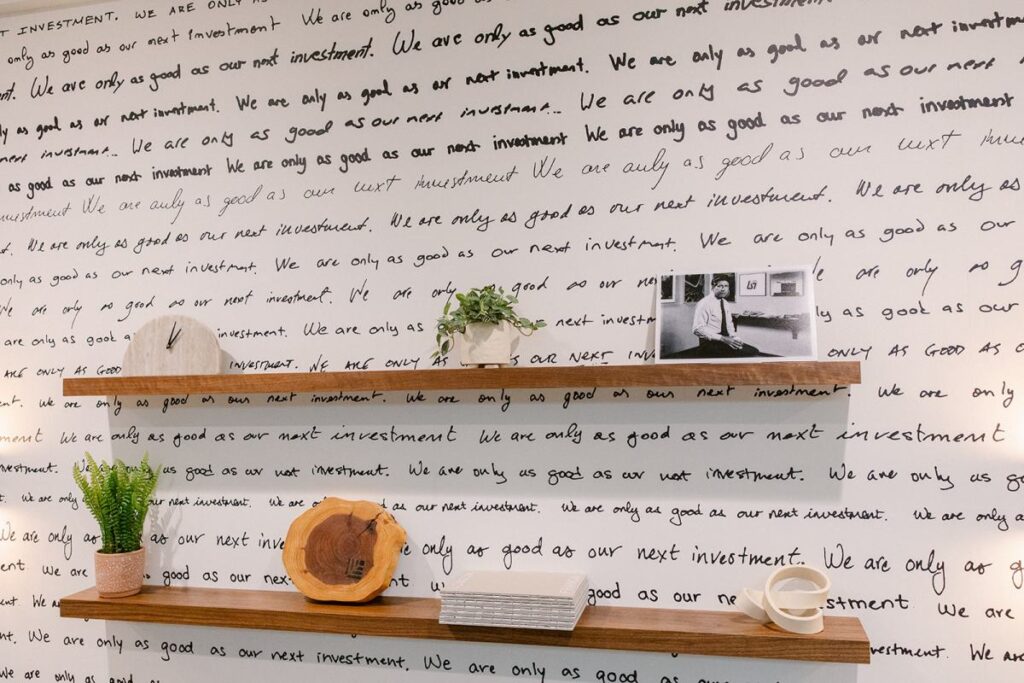 T INVESTMENT. WE ARE ONLY
only as good as our next investment We are only as good as our next investment
nt. We are only as good as our next investment. We are only as good as our next investment
ly as good as our next investment. We are only as good as our next investment. We are only as good as our next investment
next investment.. We are only as good as our next investment... We are only as good as our next
as good as our next investment We are only as good as our next investment We are only as good as our next investment
investment We are only as good as our next investment We are only as good as our next investment
t. We are only as good as our next investment. We are only as good as our next investment. We are only as
only as good as our next investment. We are only as good as our next investment. We are only as good as our
We are only as good as our next investment. We are only as good as our next We are only as
are only as good investment. We are only as next investment We are only as good as our
ARE ONLY AS GOOD INVESTMENT. WE ARE ONLY AS OUR NEXT ONLY AS GOOD AS
ent. We are only as good as our next investment. We are only as good as our next investment. We are only as good as our
ment We are only as good as our next investment We are only as good as our next investment
investment. as good as our next investment. We are only as good as our next investment. We are only as good
t. We are only our next investment. We are as our next investment. We are only as good as our next investment. We are only as
We are only as good as our next only as good as our next investment. We are only as
ment We are good as our next as good as our next We are
investment. We good as our investment We are
We are only as good as our next investment. We are only as good as our next investment. We are
We are only as good as We are only as good as our